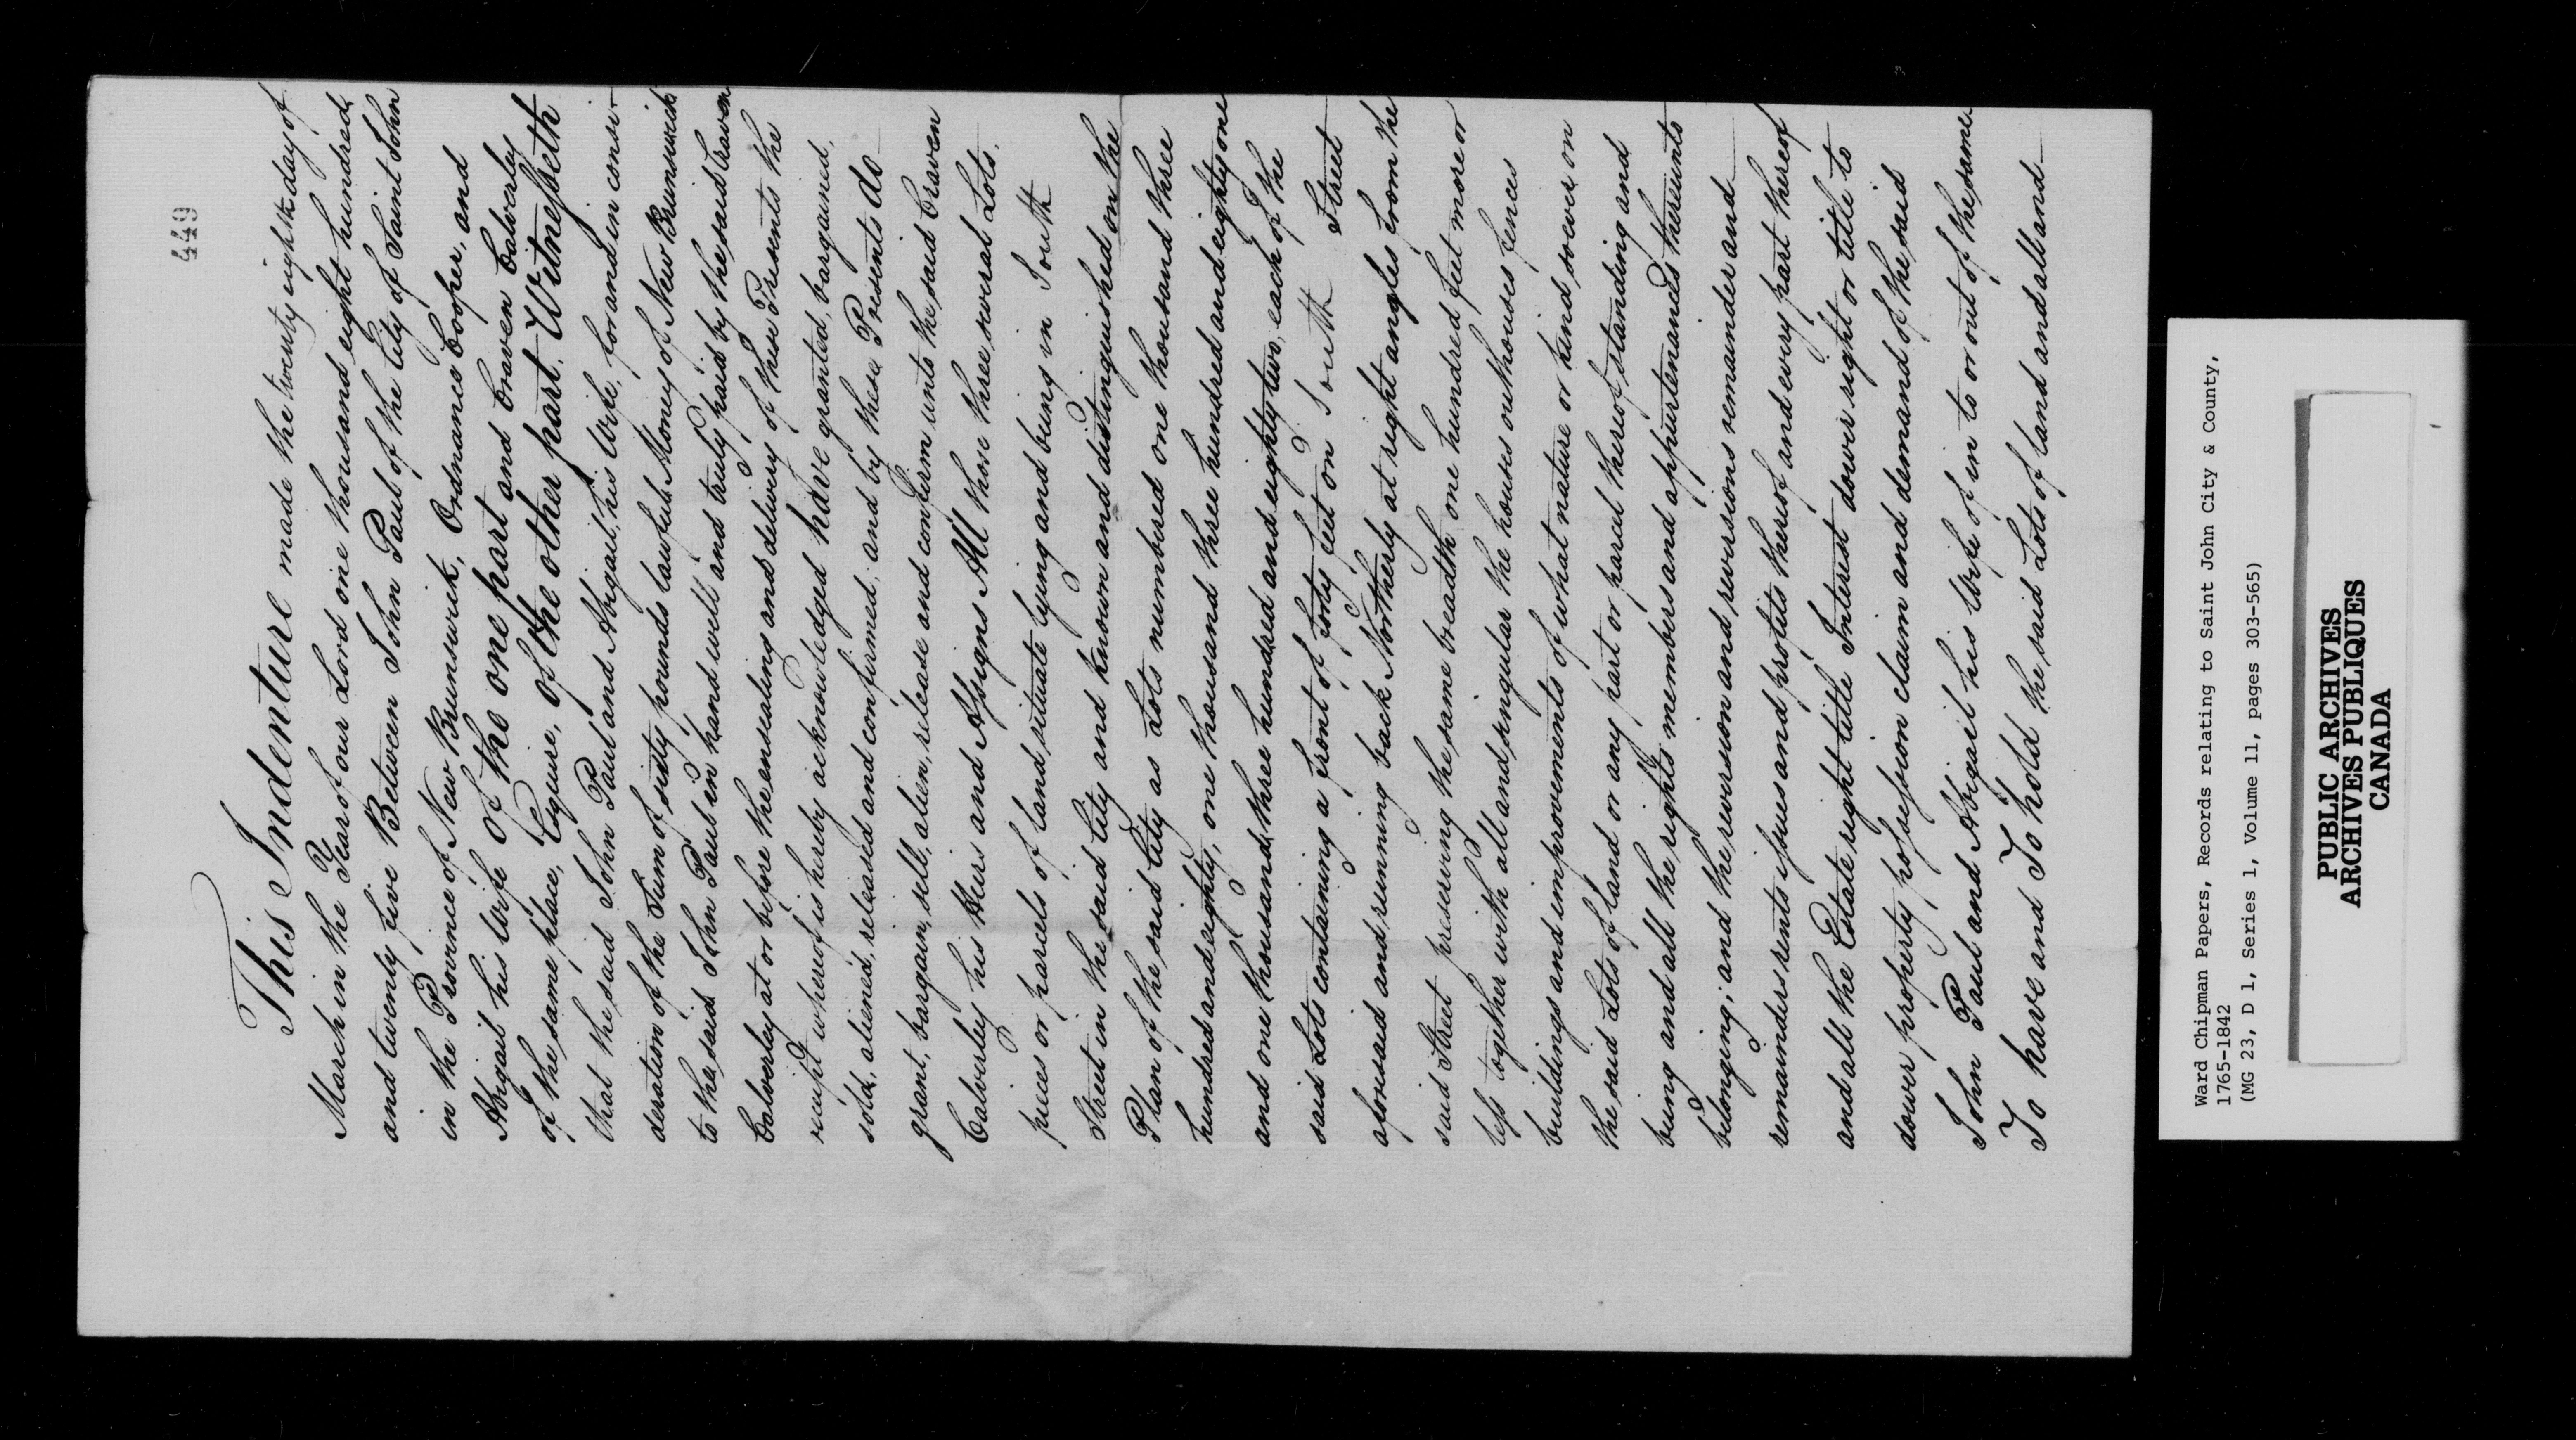 449
This Indenture made the twenty eighth day of
March in the Year of our Lord one thousand eight hundred
and twenty five Between John Paul of the City of Saint John
in the Province of New Brunswick, Ordnance Cooper, and
Abigail his Wife of the one part and Craven Calverley
of the same place, Esquire, of the other part. Witnesseth
that the said John Paul and Abigail, his Wife, for and in consi-
deration of the Sum of sixty pounds lawful Money of New Brunswick
to the said John Paul in hand well and truly paid by the said Craven
Calverley at or before the ensealing and delivery of these Presents the
receipt whereof is hereby acknowledged have granted, bargained,
sold, aliened, released and confirmed, and by these Presents do
grant, bargain, sell, alien, release and confirm unto the said Craven
Calverley his Heirs and Assigns All those three several Lots,
pieces or parcels of land, situate lying and being in South
Street in the said City and known and distinguished on the
Plan of the said City as Lots numbered one thousand three
hundred and eighty, one thousand three hundred and eighty one
and one thousand three hundred and eighty two, each of the
said Lots containing a front of forty feet on South Street
aforesaid and running back Northerly at right angles from the
said Street preserving the same breadth one hundred feet more or
less together with all and singular the houses outhouses fences
buildings and improvements of what nature or kind soever on
the said Lots of land or any part or parcel thereof standing and
being and all the rights members and appurtenances thereunto
belonging; and the reversion and reversions remainder and
remainders rents issues and profits thereof and every part thereof
and all the Estate right title Interest dower right or title to
dower property possession claim and demand of the said
John Paul and Abigail his Wife of in to or out of the same
To have and To hold the said Lots of land and all and
Ward Chipman Papers, Records relating to Saint John City & County,
1765-1842
(MG 23, D 1, Series 1, Volume 11, pages 303-565)
PUBLIC ARCHIVES
ARCHIVES PUBLIQUES
CANADA